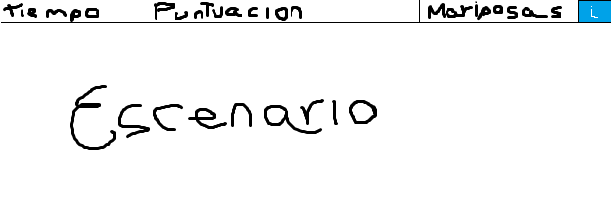 Tiempo Puntuacion Mariposas i
Escenario